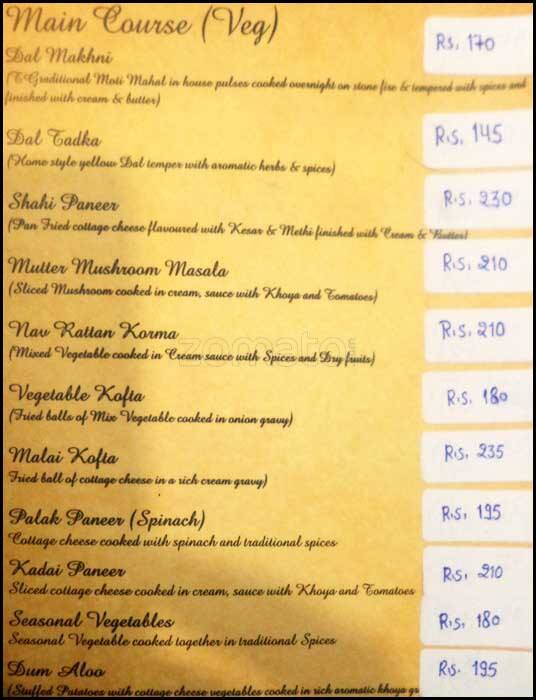 Main Course (Veg)
Dal Makhni
Rs. 170
(TGraditional Moti Mahal in house pulses cooked overnight on stone fire & tempered with spices and
finished with cream & butter)
Dal Tadka
Rs. 145
(Home style yellow Dal temper with aromatic herbs & spices)
Shahi Paneer
Rs. 230
(Pan Fried cottage cheese flavoured with Kesar & Methi finished with Cream & Butter)
Mutter Mushroom Masala
Rs. 210
(Sliced Mushroom cooked in cream, sauce with Khoya and Tomatoes)
Nav Rattan Korma
Rs. 210
(Mixed Vegetable cooked in Cream sauce with Spices and Dry fruits)
zomato
Vegetable Kofta
Rs. 180
(Fried balls of Mix Vegetable cooked in onion gravy)
Malai Kofta
Rs. 235
Fried ball of cottage cheese in a rich cream gravy)
Palak Paneer (Spinach)
Rs. 195
Cottage cheese cooked with spinach and traditional spices
Kadai Paneer
Rs. 210
Sliced cottage cheese cooked in cream, sauce with Khoya and Tomatoes
Seasonal Vegetables
Rs. 180
Seasonal Vegetable cooked together in traditional Spices
Dum Aloo
Rs. 195
(Stuffed Potatoes with cottage cheese vegetables cooked in rich aromatic khoya gr